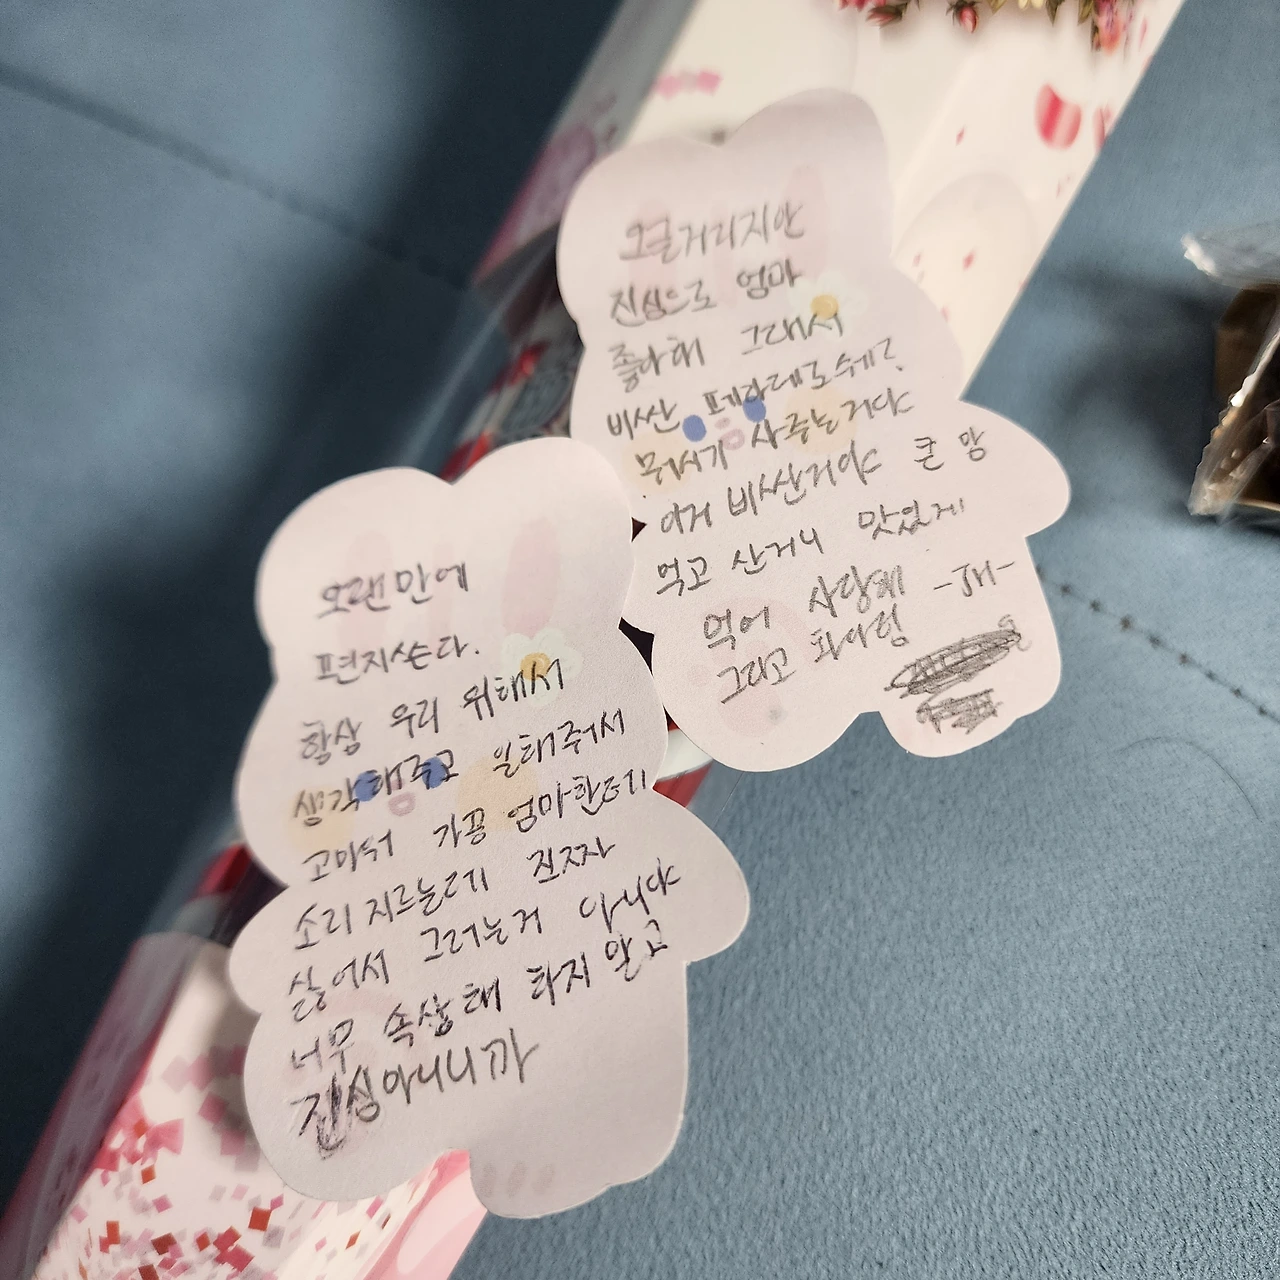 오랜만에
편지쓴다.
항상 우리 위해서
생각해주고 일해줘서
고마워 가끔 엄마한테
소리지르는데 진짜
싫어서 그러는거 아니야
너무 속상해 하지 말고
진심아니니까
오글거리지만
진심으로 엄마
좋아해 그래서
비싼 페라레로쉐?
뭐시기 사주는거다
이거 비싼거야 큰 맘
먹고 산거니 맛있게
먹어 사랑해
그리고 파이팅